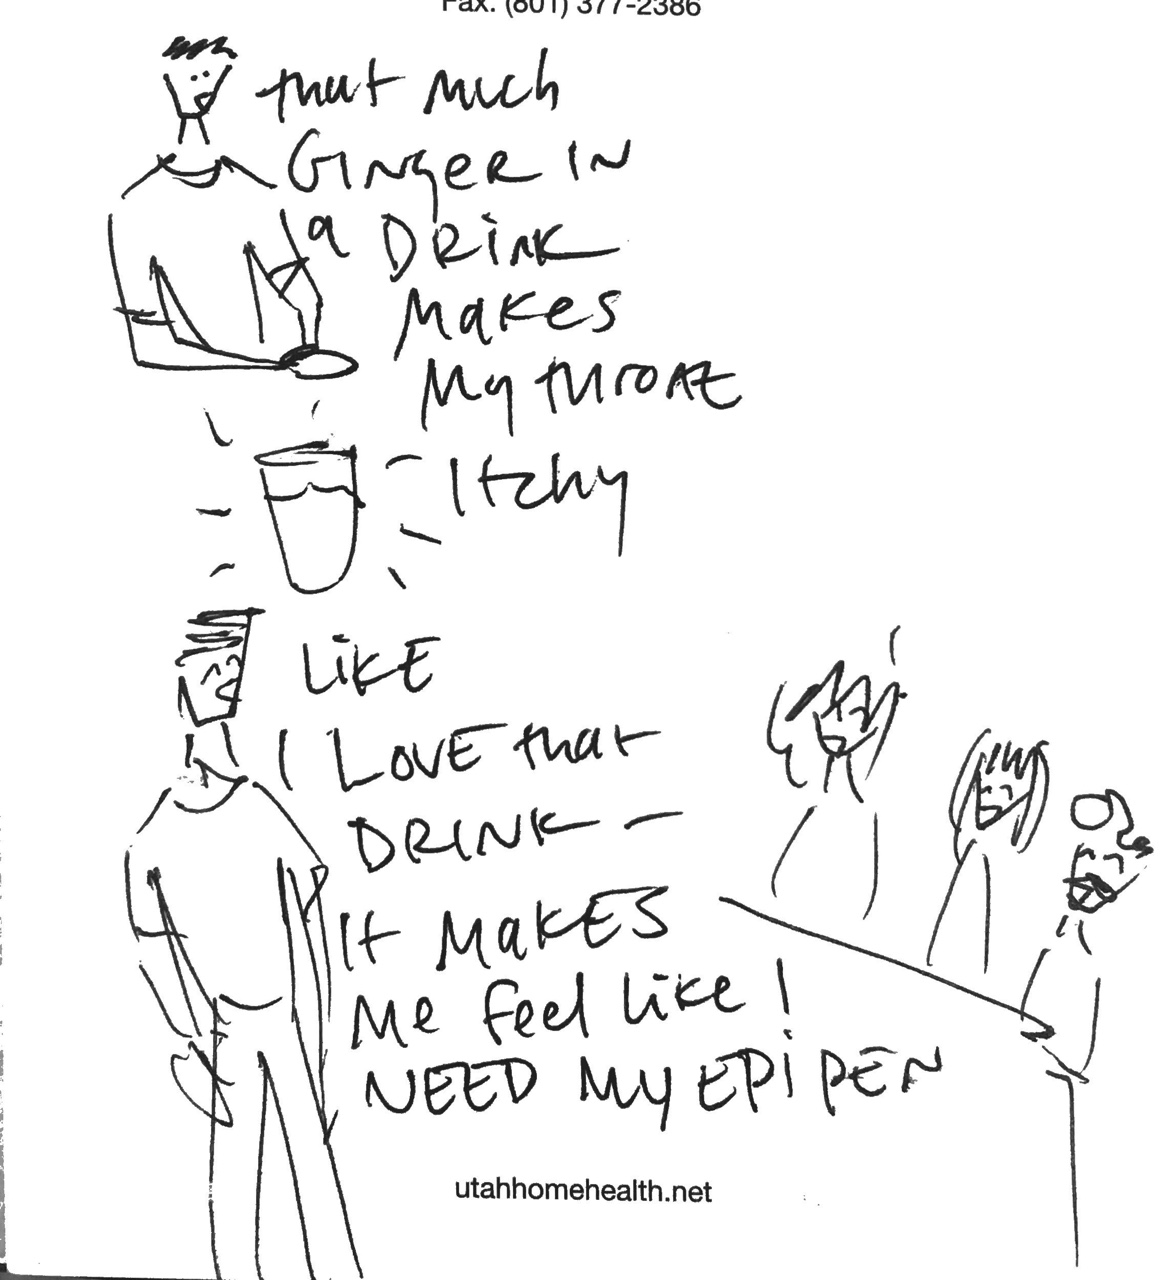 Fax: (801) 377-2386
that much
GINgER IN
a DRiNK
Makes
My thROAt
Itchy
LiKE
I LOVE that
DRINK —
It MaKES
Me feel like I
NEED My EPi PEN
utahhomehealth.net